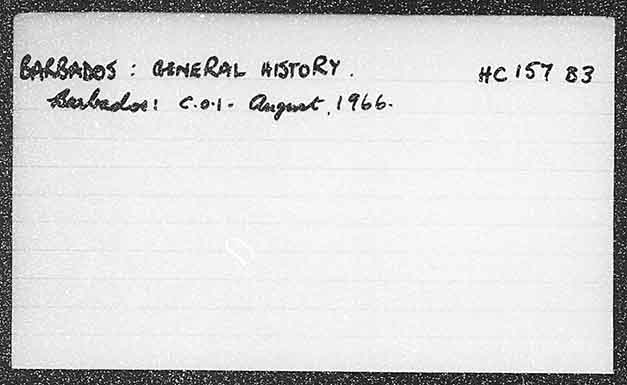 BARBADOS : GENERAL HISTORY. HC 157 B3
Barbados: C.O.I. August, 1966.